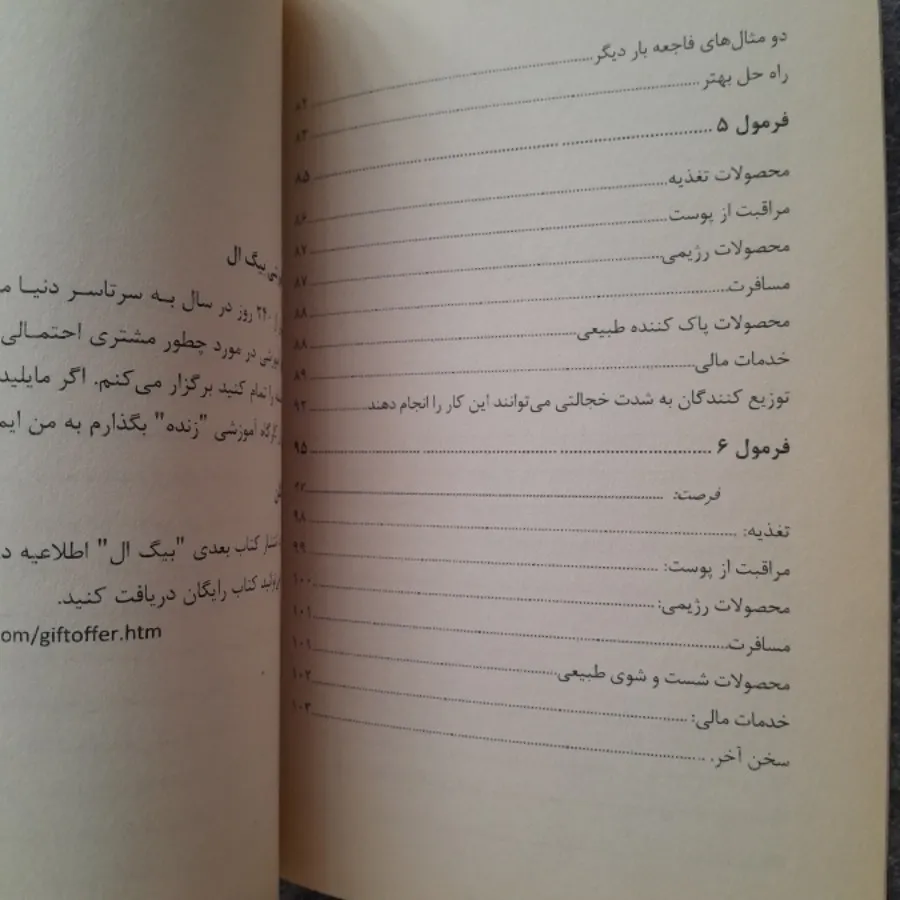 دو مثال‌های فاجعه بار دیگر ........ ۸۲
راه حل بهتر ........ ۸۳
فرمول ۵ ........ ۸۵
محصولات تغذیه ........ ۸۶
مراقبت از پوست ........ ۸۷
محصولات رژیمی ........ ۸۷
مسافرت ........ ۸۸
محصولات پاک کننده طبیعی ........ ۸۸
خدمات مالی ........ ۸۹
توزیع کنندگان به شدت خجالتی می‌توانند این کار را انجام دهند ........ ۹۲
فرمول ۶ ........ ۹۵
فرصت: ........ ۹۷
تغذیه: ........ ۹۸
مراقبت از پوست: ........ ۹۹
محصولات رژیمی: ........ ۱۰۰
مسافرت ........ ۱۰۱
محصولات شست و شوی طبیعی ........ ۱۰۱
خدمات مالی: ........ ۱۰۲
سخن آخر. ........ ۱۰۳
بیگ ال
۲۴۰ روز در سال به سرتاسر دنیا
در مورد چطور مشتری احتمالی
را تمام کنید برگزار می‌کنم. اگر مایلید
آموزشی "زنده" بگذارم به من
کتاب بعدی "بیگ ال" اطلاعیه
کتاب رایگان دریافت کنید.
om/giftoffer.htm